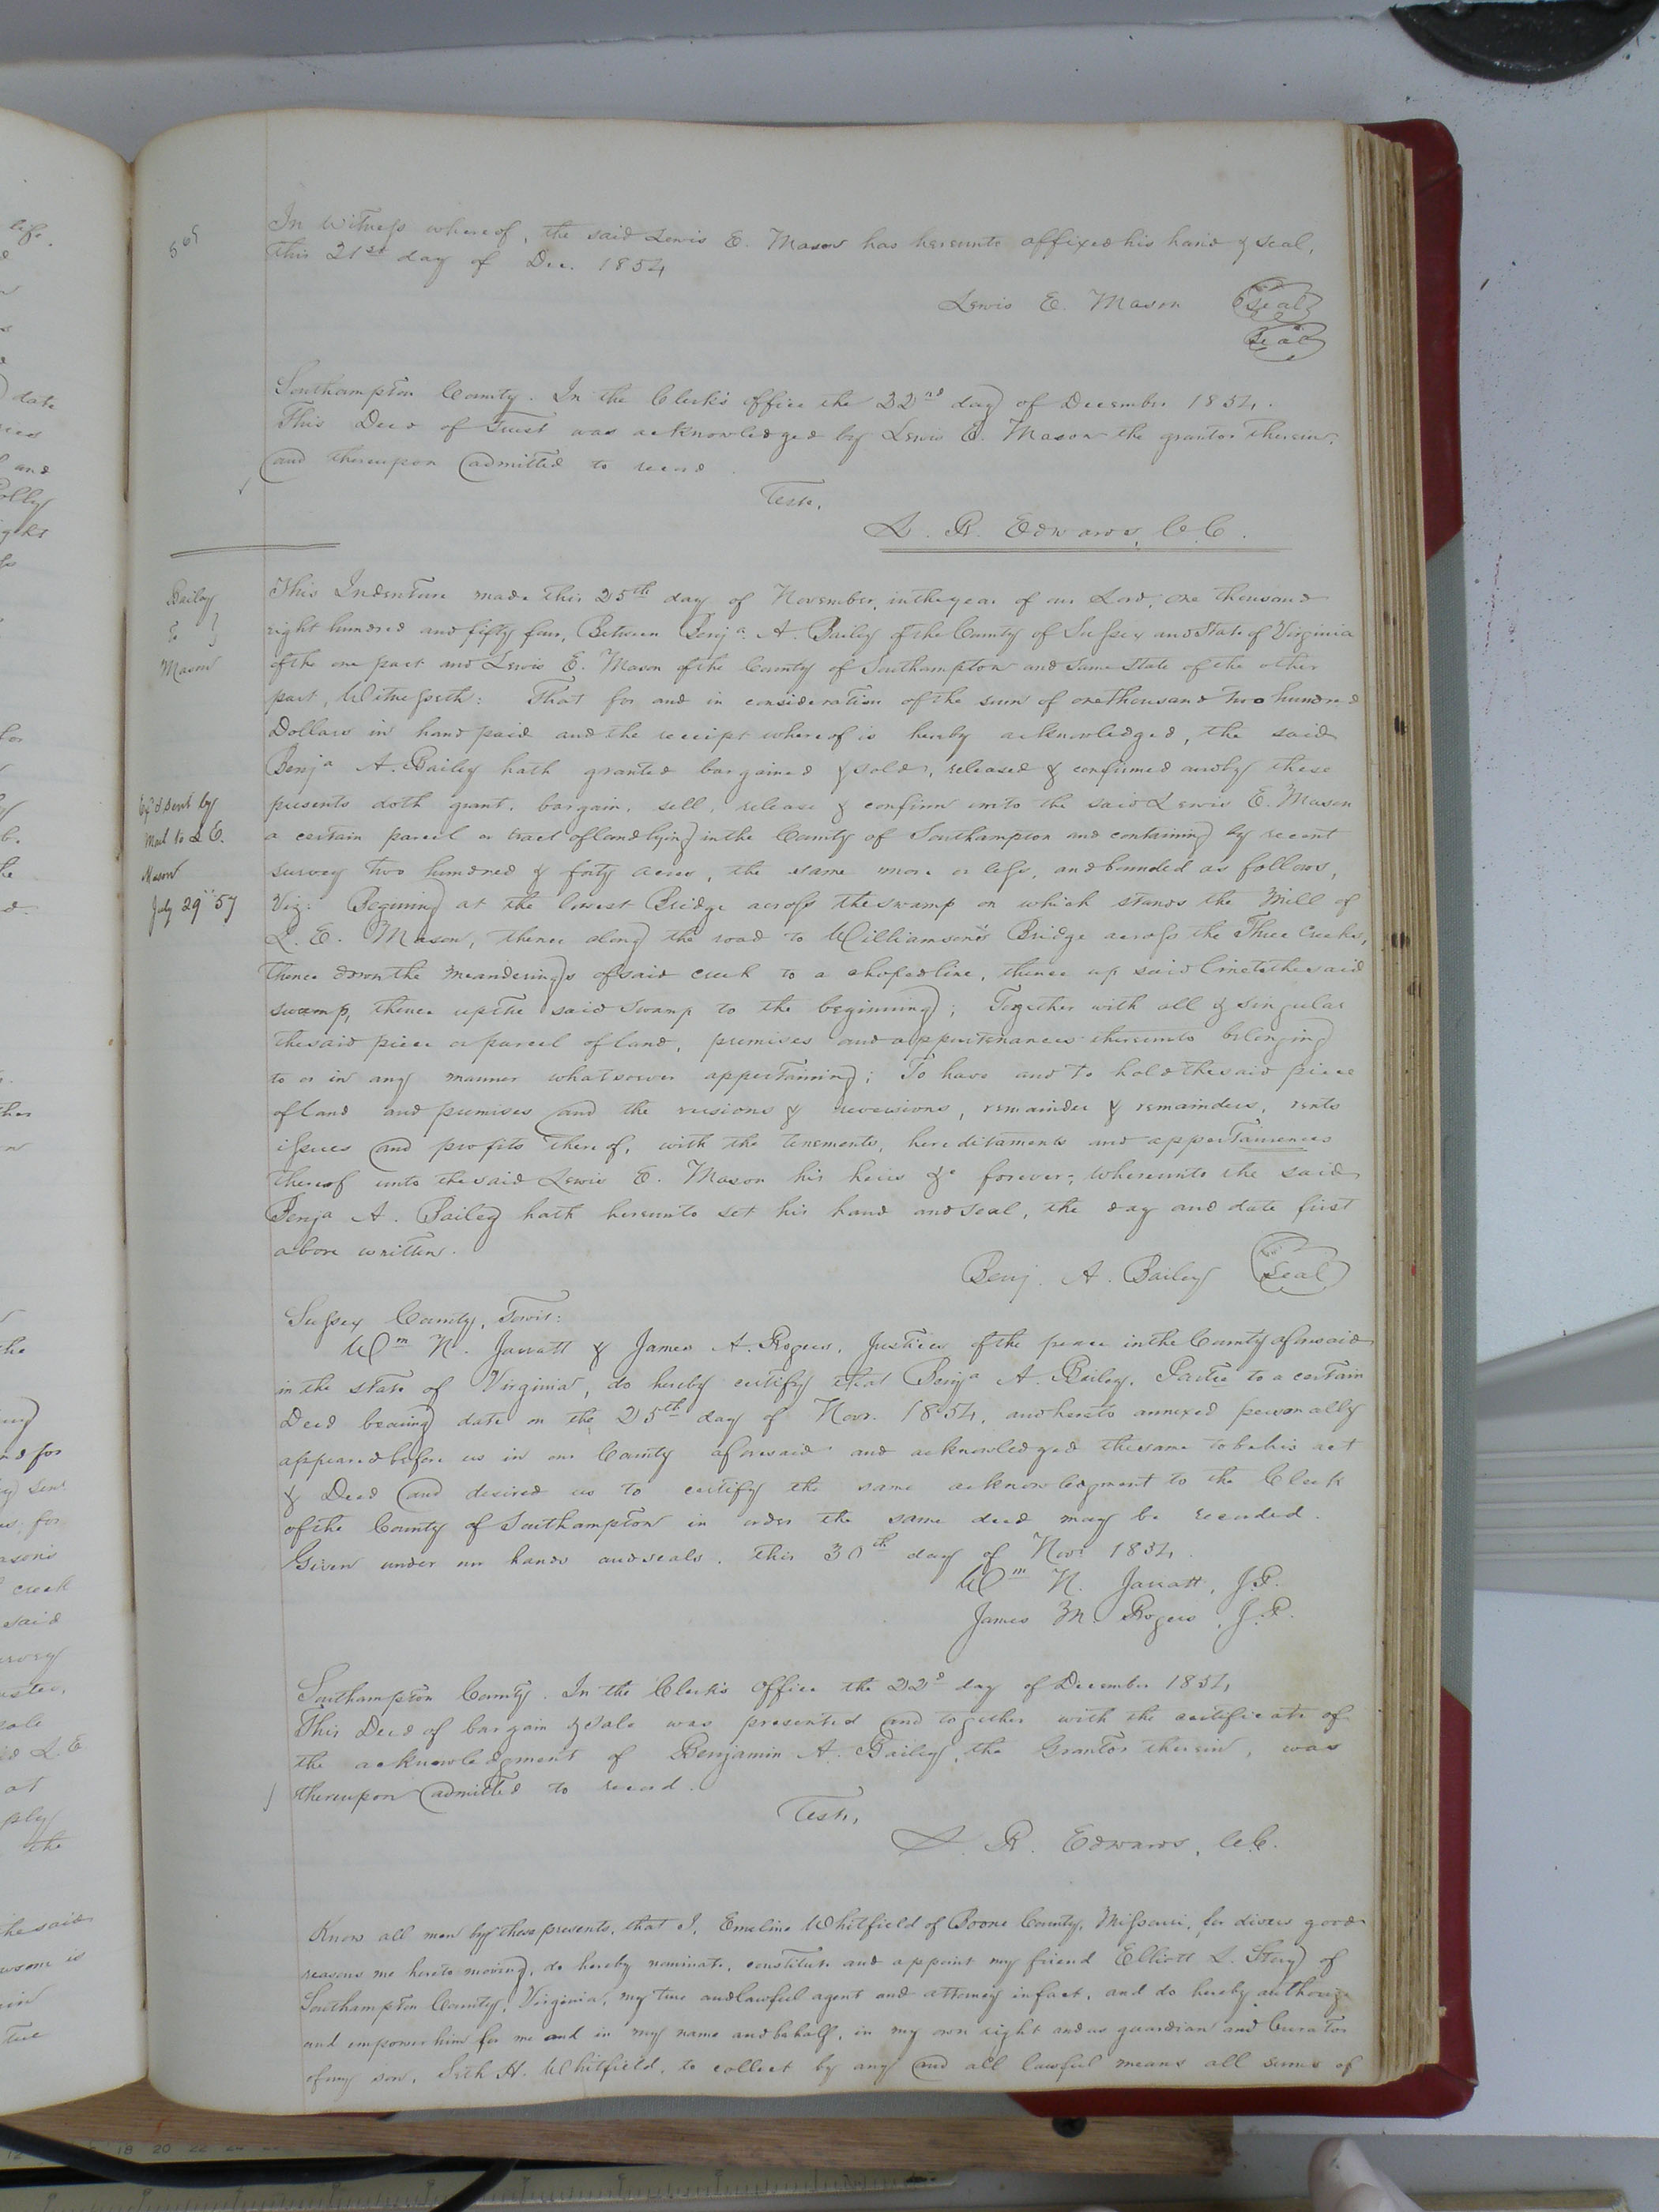 569
In Witness whereof, the said Lewis E. Mason has hereunto affixed his hand & seal,
this 21st day of Dec. 1854
Lewis E. Mason Seal
Seal
Southampton County. In the Clerk's office the 22nd day of December 1854.
This Deed of Trust was acknowledged by Lewis E. Mason the grantor therein,
and thereupon admitted to record.
Teste,
L. R. Edwards, C.C.
Bailey
To }
Mason
This Indenture made this 25th day of November, in the year of our Lord, one thousand
eight hundred and fifty four, Between Benja. A. Bailey of the County of Sussex and State of Virginia
of the one part and Lewis E. Mason of the County of Southampton and same state of the other
part, Witnesseth: That for and in consideration of the sum of one thousand two hundred
Dollars in hand paid and the receipt whereof is hereby acknowledged, the said
Benja A. Bailey hath granted bargained & sold, released & confirmed and by these
presents doth grant, bargain, sell, release & confirm unto the said Lewis E. Mason
sent by
Mail to L E.
Mason
July 29" 57
a certain parcel or tract of land lying in the County of Southampton and containing by recent
survey two hundred & forty acres, the same more or less, and bounded as follows,
Viz: Begining at the lowest Bridge across the swamp on which stands the Mill of
L. E. Mason, thence along the road to Williamson's Bridge across the Three Creeks,
thence down the meanderings of said creek to a choped line, thence up said line to the said
swamp, thence up the said swamp to the beginning; Together with all & singular
the said piece or parcel of land, premises and appurtenances thereunto belonging
to or in any manner whatsoever appertaining; To have and to hold the said piece
of land and premises and the revisions & reversions, remainder & remainders, rents
issues and profits thereof, with the tenements, hereditaments and appertainences
thereof unto the said Lewis E. Mason his heirs &c forever; whereunto the said
Benja A. Bailey hath hereunto set his hand and seal, the day and date first
above written.
Benj. A. Bailey Seal
Sussex County, Towit:
Wm N. Jarratt & James A. Rogers, Justices of the peace in the County aforesaid
in the state of Virginia, do hereby certify that Benja A. Bailey, Partie to a certain
Deed bearing date on the 25th day of Novr. 1854, and hereto annexed personally
appeared before us in our County aforesaid and acknowledged the same to be his act
& Deed and desired us to certify the same acknowledgment to the Clerk
of the County of Southampton in order the same deed may be recorded.
Given under our hands and seals. this 30th day of Novr 1854.
Wm N. Jarratt, J.P.
James M. Rogers, J.P.
Southampton County. In the Clerk's Office the 22d day of December 1854,
This Deed of bargain & sale was presented and together with the certificate of
the acknowledgment of Benjamin A. Bailey, the Grantor therein, was
thereupon admitted to record.
Teste,
L. R. Edwards, C.C.
Know all men by these presents, that I, Emeline Whitfield of Boone County, Missouri, for divers good
reasons me hereto moving, do hereby nominate, constitute and appoint my friend Elliott L. Story of
Southampton County, Virginia, my true and lawful agent and attorney in fact, and do hereby authorize
and empower him for me and in my name and behalf, in my own right and as guardian and Curator
of my son, Seth H. Whitfield, to collect by any and all lawful means all sums of